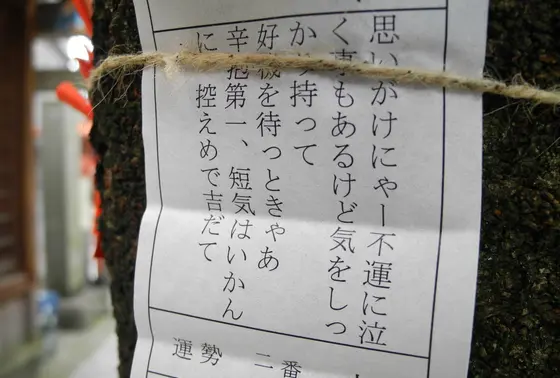 思いがけにゃー不運に泣
く事もあるけど気をしっ
かり持って
好機を待つときゃあ
辛抱第一、短気はいかん
に、控えめで吉だて
二番
運勢